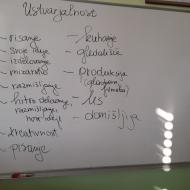 Ustvarjalnost
- risanje
- svoje ideje
- izdelovanje
- mizarstvo
- razmišljanje
- hitro delovanje,
razmišljanje,
nove ideje
- kreativnost
- pisanje
- kuhanje
- gledališče
- produkcija
(glasbena,
filmska)
- ples
- domišljija